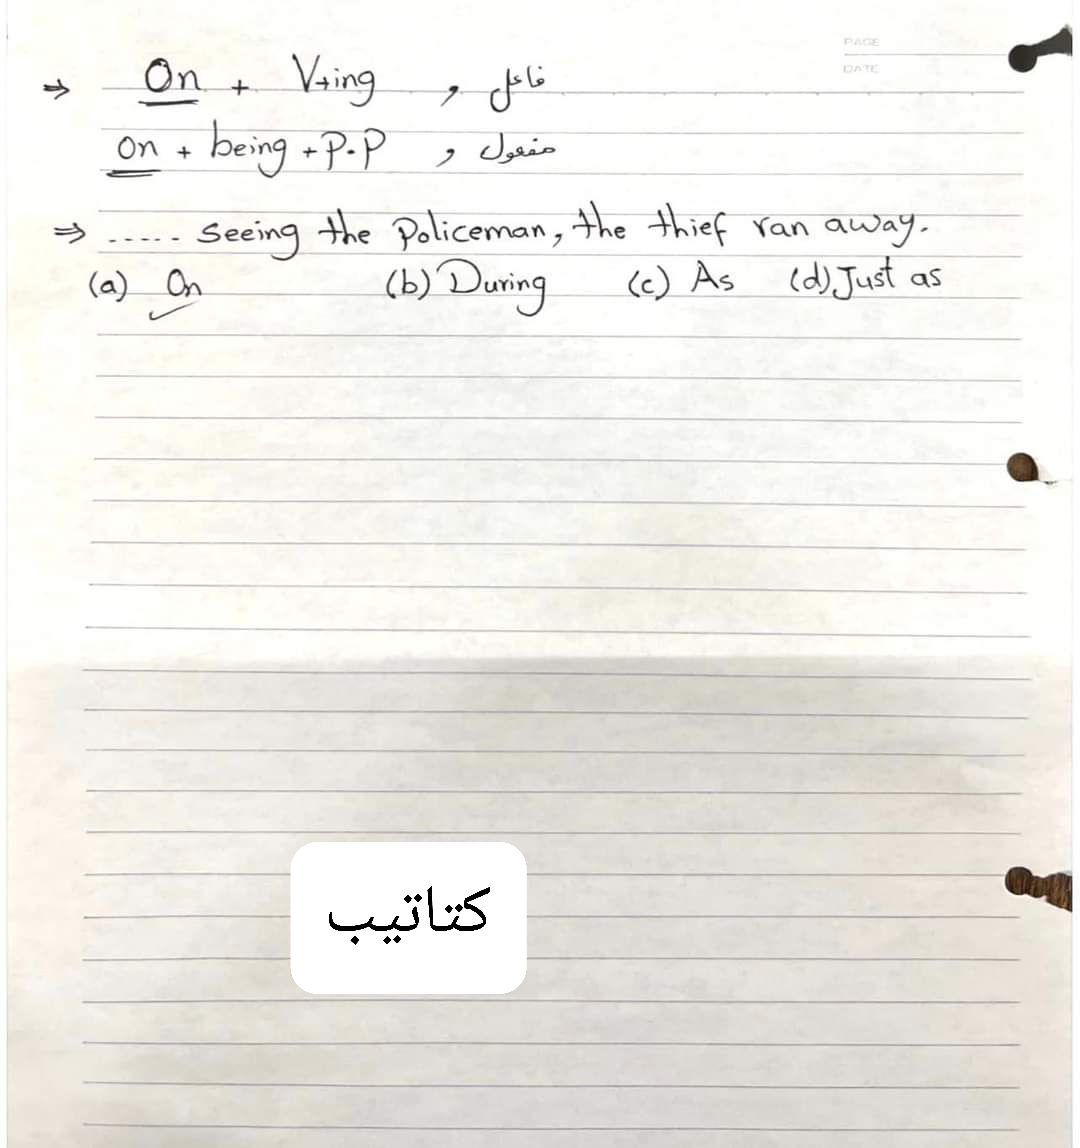 PAGE
DATE
⇒ On + V+ing , فاعل
on + being + P.P , مفعول
⇒ ..... seeing the Policeman, the thief ran away.
(a) On (b) During (c) As (d) Just as
كتاتيب